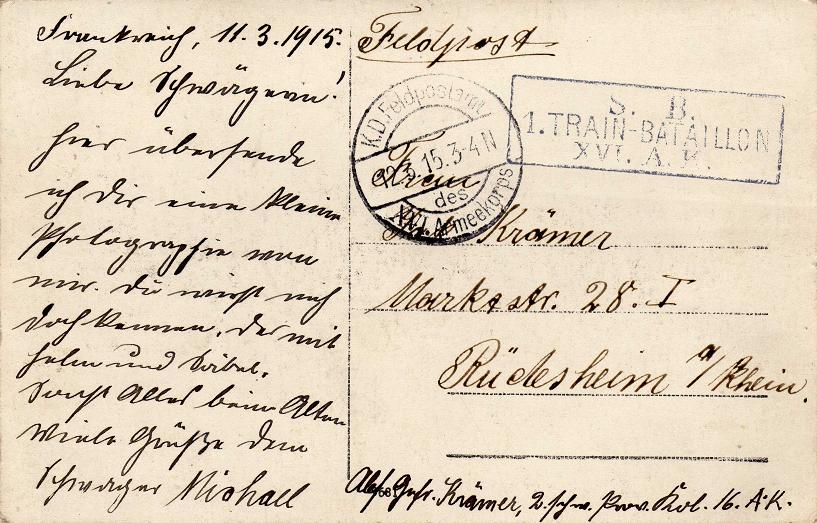 Frankreich, 11.3.1915.
Liebe Schwägerin!
hier übersende
ich dir eine kleine
Photographie von
mir. du wirst mich
doch kennen, der mit
helm und Säbel.
Sonst Alles beim Alten
Viele Grüße dein
Schwager Michael
Feldpost
K.D. Feldpostamt
12.3.15.3-4N
des
XVI. Armeekorps
S. B.
1. TRAIN-BATAILLON
XVI. A. K.
Frau
Krämer
Marktstr. 28. I
Rüdesheim a/Rhein.
Abs. Gefr. Krämer, 2. schw. Prov. Kol. 16. A.K.